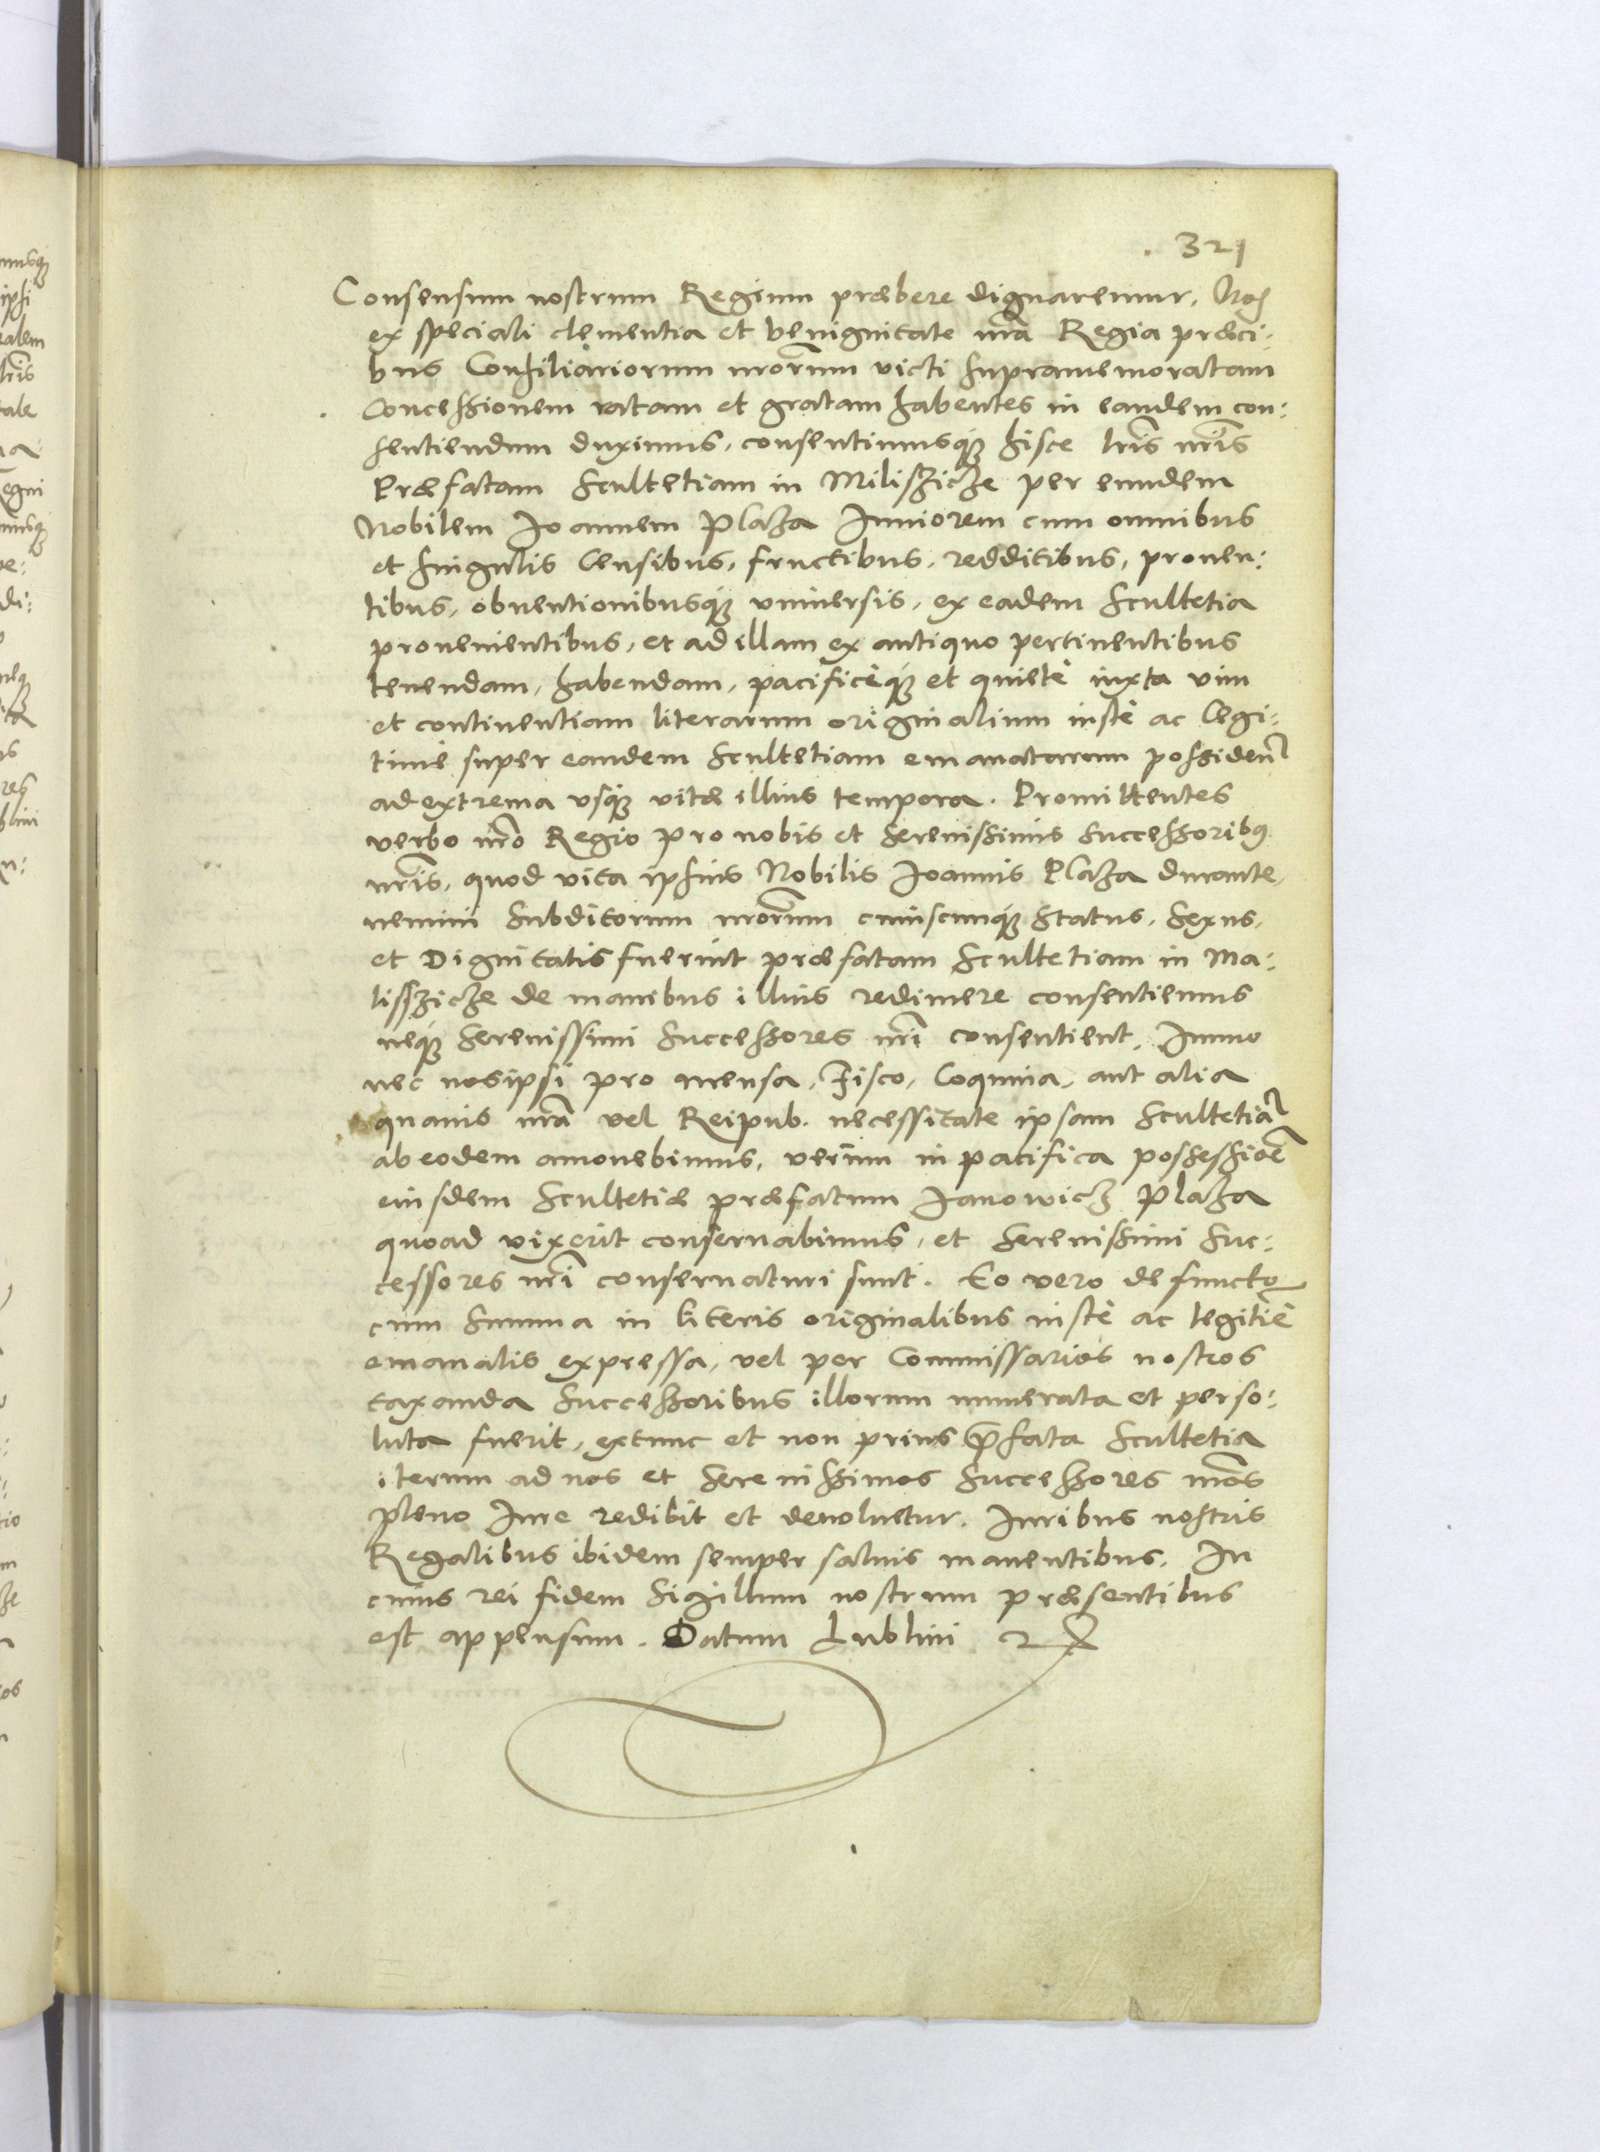 321
Consensum nostrum Regium præbere dignaremur, Nos
ex speciali clementia et benignitate nrã Regia præci:
bus Consiliariorum nrorum victi supramemoratam
Concessionem ratam et gratam habentes in eandem con:
sentiendum duximus, consentimusq́ue hisce lris nris
Præfatam Scultetiam in Miliszicze per eundem
Nobilem Joannem Plaza Juniorem cum omnibus
et singulis Censibus, fructibus, redditibus, prouen:
tibus, obuentionibusq́ue vniuersis, ex eadem Scultetia
prouenientibus, et ad illam ex antiquo pertinentibus
tenendam, habendam, pacificèq́ue et quietè iuxta vim
et continentiam literarum originalium iustè ac legi:
timè super eandem Scultetiam emanatarum possidenᷓ
ad extrema vsq́ue vitæ illius tempora. Promittentes
verbo nro Regio pro nobis et Serenissimis Successoribꝰ
nris, quod vita ipsius Nobilis Joannis Plaza durante,
nemini Subditorum nrorum cuiuscunq́ue Status, Sexus,
et Dignitatis fuerint præfatam Scultetiam in Ma:
lisszicze de manibus illius redimere consentiemus
neq́ue Serenissimi Successores nri consentient, Immo
nec nosipsi pro mensa, Fisco, Coquina, aut alia
quauis nrã vel Reipub. necessitate ipsam Scultetiã
ab eodem amouebimus, verùm in pacifica possessiõe
eiusdem Scultetiæ præfatum Janowicz Plaza
quoad vixerit conseruabimus, et Serenissimi Suc:
cessores nri conseruaturi sunt. Eo vero defuncto
cum Summa in literis originalibus iustè ac legitiè
emanatis expressa, vel per Commissarios nostros
taxanda Successoribus illorum numerata et perso:
luta fuerit, extunc et non prius p̃fata Scultetia
iterum ad nos et Serenissimos Successores nros
pleno Iure redibit et deuoluetur. Iuribus nostris
Regalibus ibidem semper saluis manentibus. In
cuius rei fidem Sigillum nostrum præsentibus
est appensum. Datum Lublini